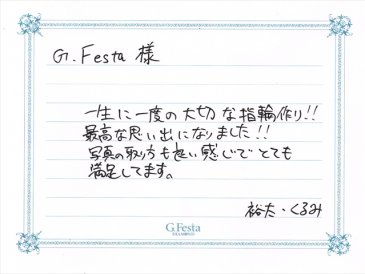 G.Festa 様
一生に一度の大切な指輪作り!!
最高な思い出になりました!!
写真の取り方も良い感じでとても
満足してます。
裕太・くるみ
G.Festa